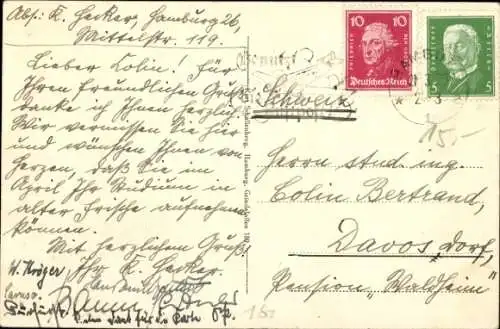 Abs: K. Hecker, Hamburg 26,
Mittelstr. 119.
Lieber Colin! Für
Ihren freundlichen Gruß
danke ich Ihnen herzlich.
Wir vermissen Sie zur
und wünschen Ihnen von
Herzen, daß Sie im
April Ihr Studium in
alter Frische aufnehmen
können.
Mit herzlichem Gruß!
Ihr K. Hecker.
W. Kröger
FRIEDRICH
10 10
Deutsches Reich
5 5
Benutzt
Schweiz
Herrn stud. ing.
Colin Bertrand,
Davos Dorf,
Pension „Waldheim"
Schallenberg, Hamburg, Grindelallee
75,-